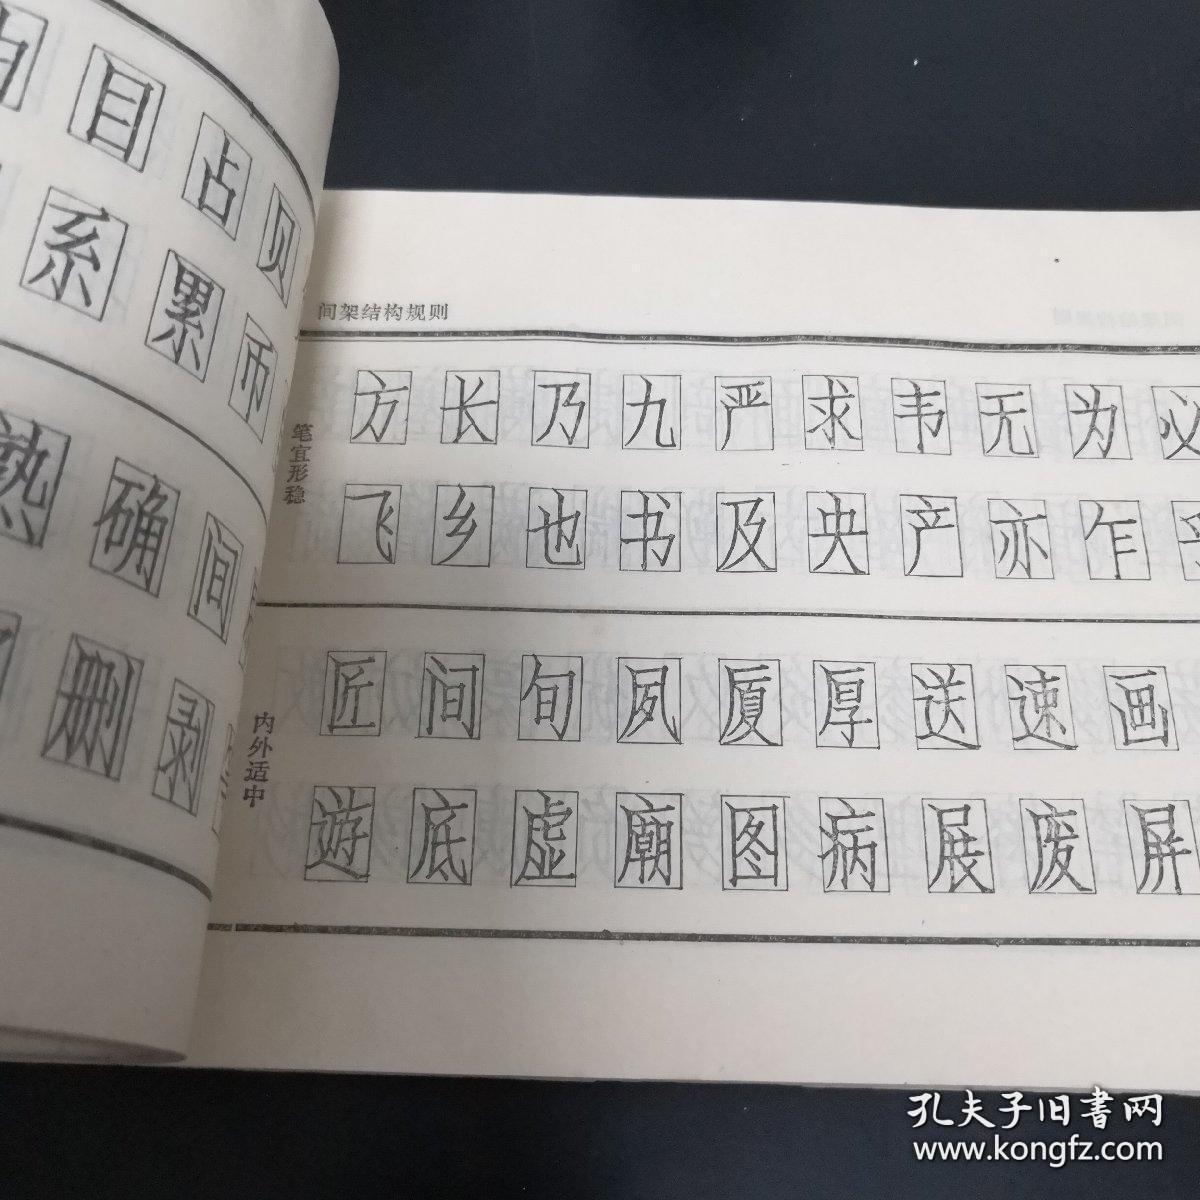 目占贝
系累币
热确间
删剥
间架结构规则
笔宜形稳
方长乃九严求韦无为必
飞乡也书及央产亦乍
内外适中
匠间旬夙厦厚送速画
遊底虚廟图病展废屏
孔夫子旧書网
www.kongfz.com